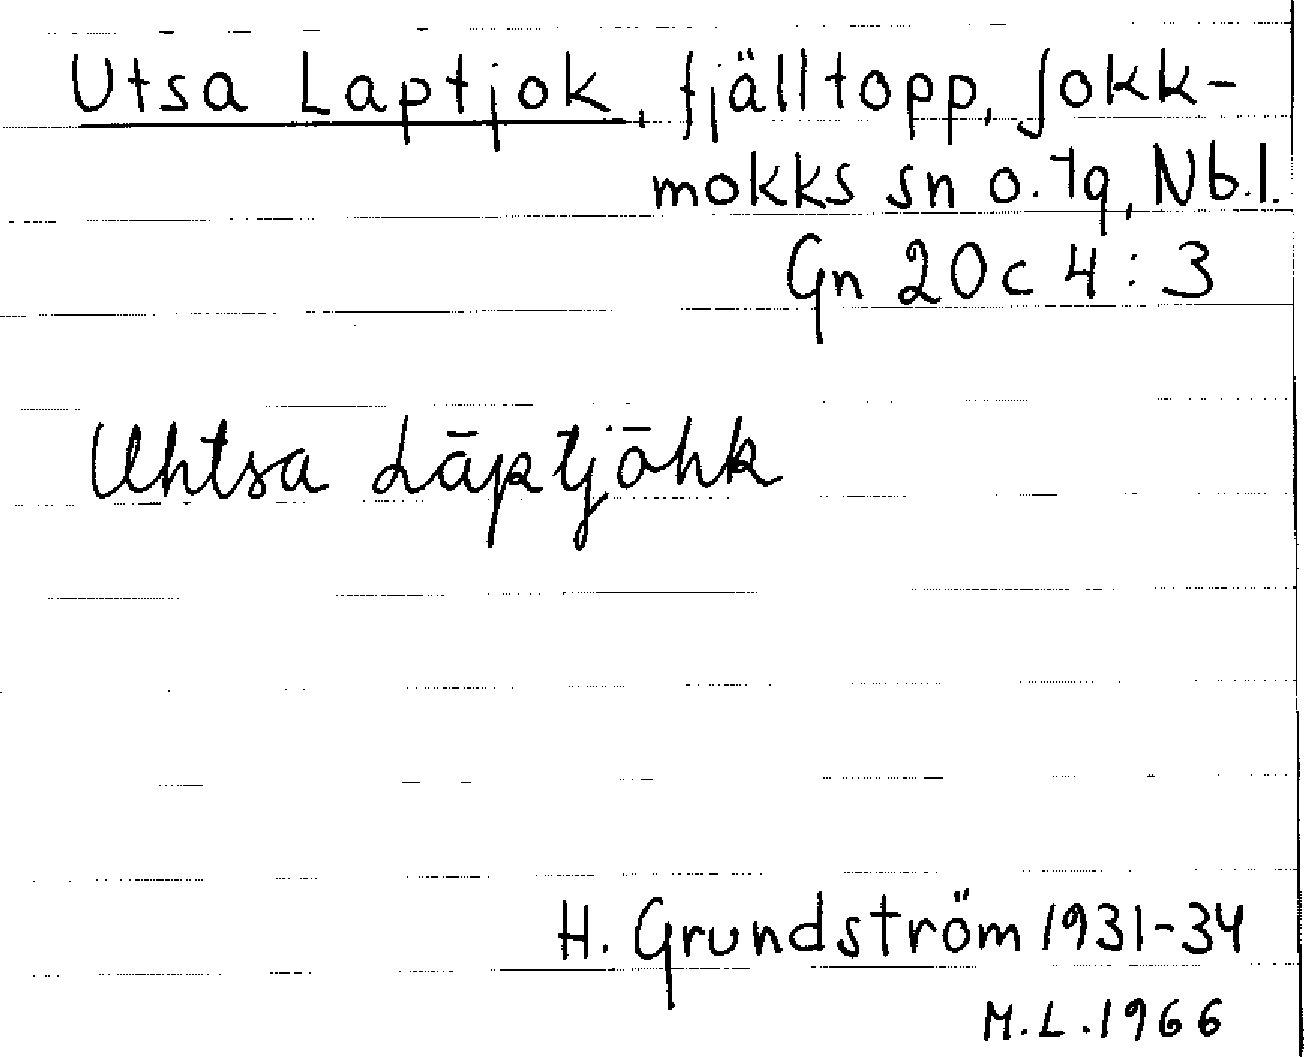 Utsa Laptjok, fjälltopp, Jokk-
mokks sn o. tg, Nb.l.
Gn 20c 4:3
Uhtsa Lāptjōhk
H. Grundström 1931-34
M.L. 1966